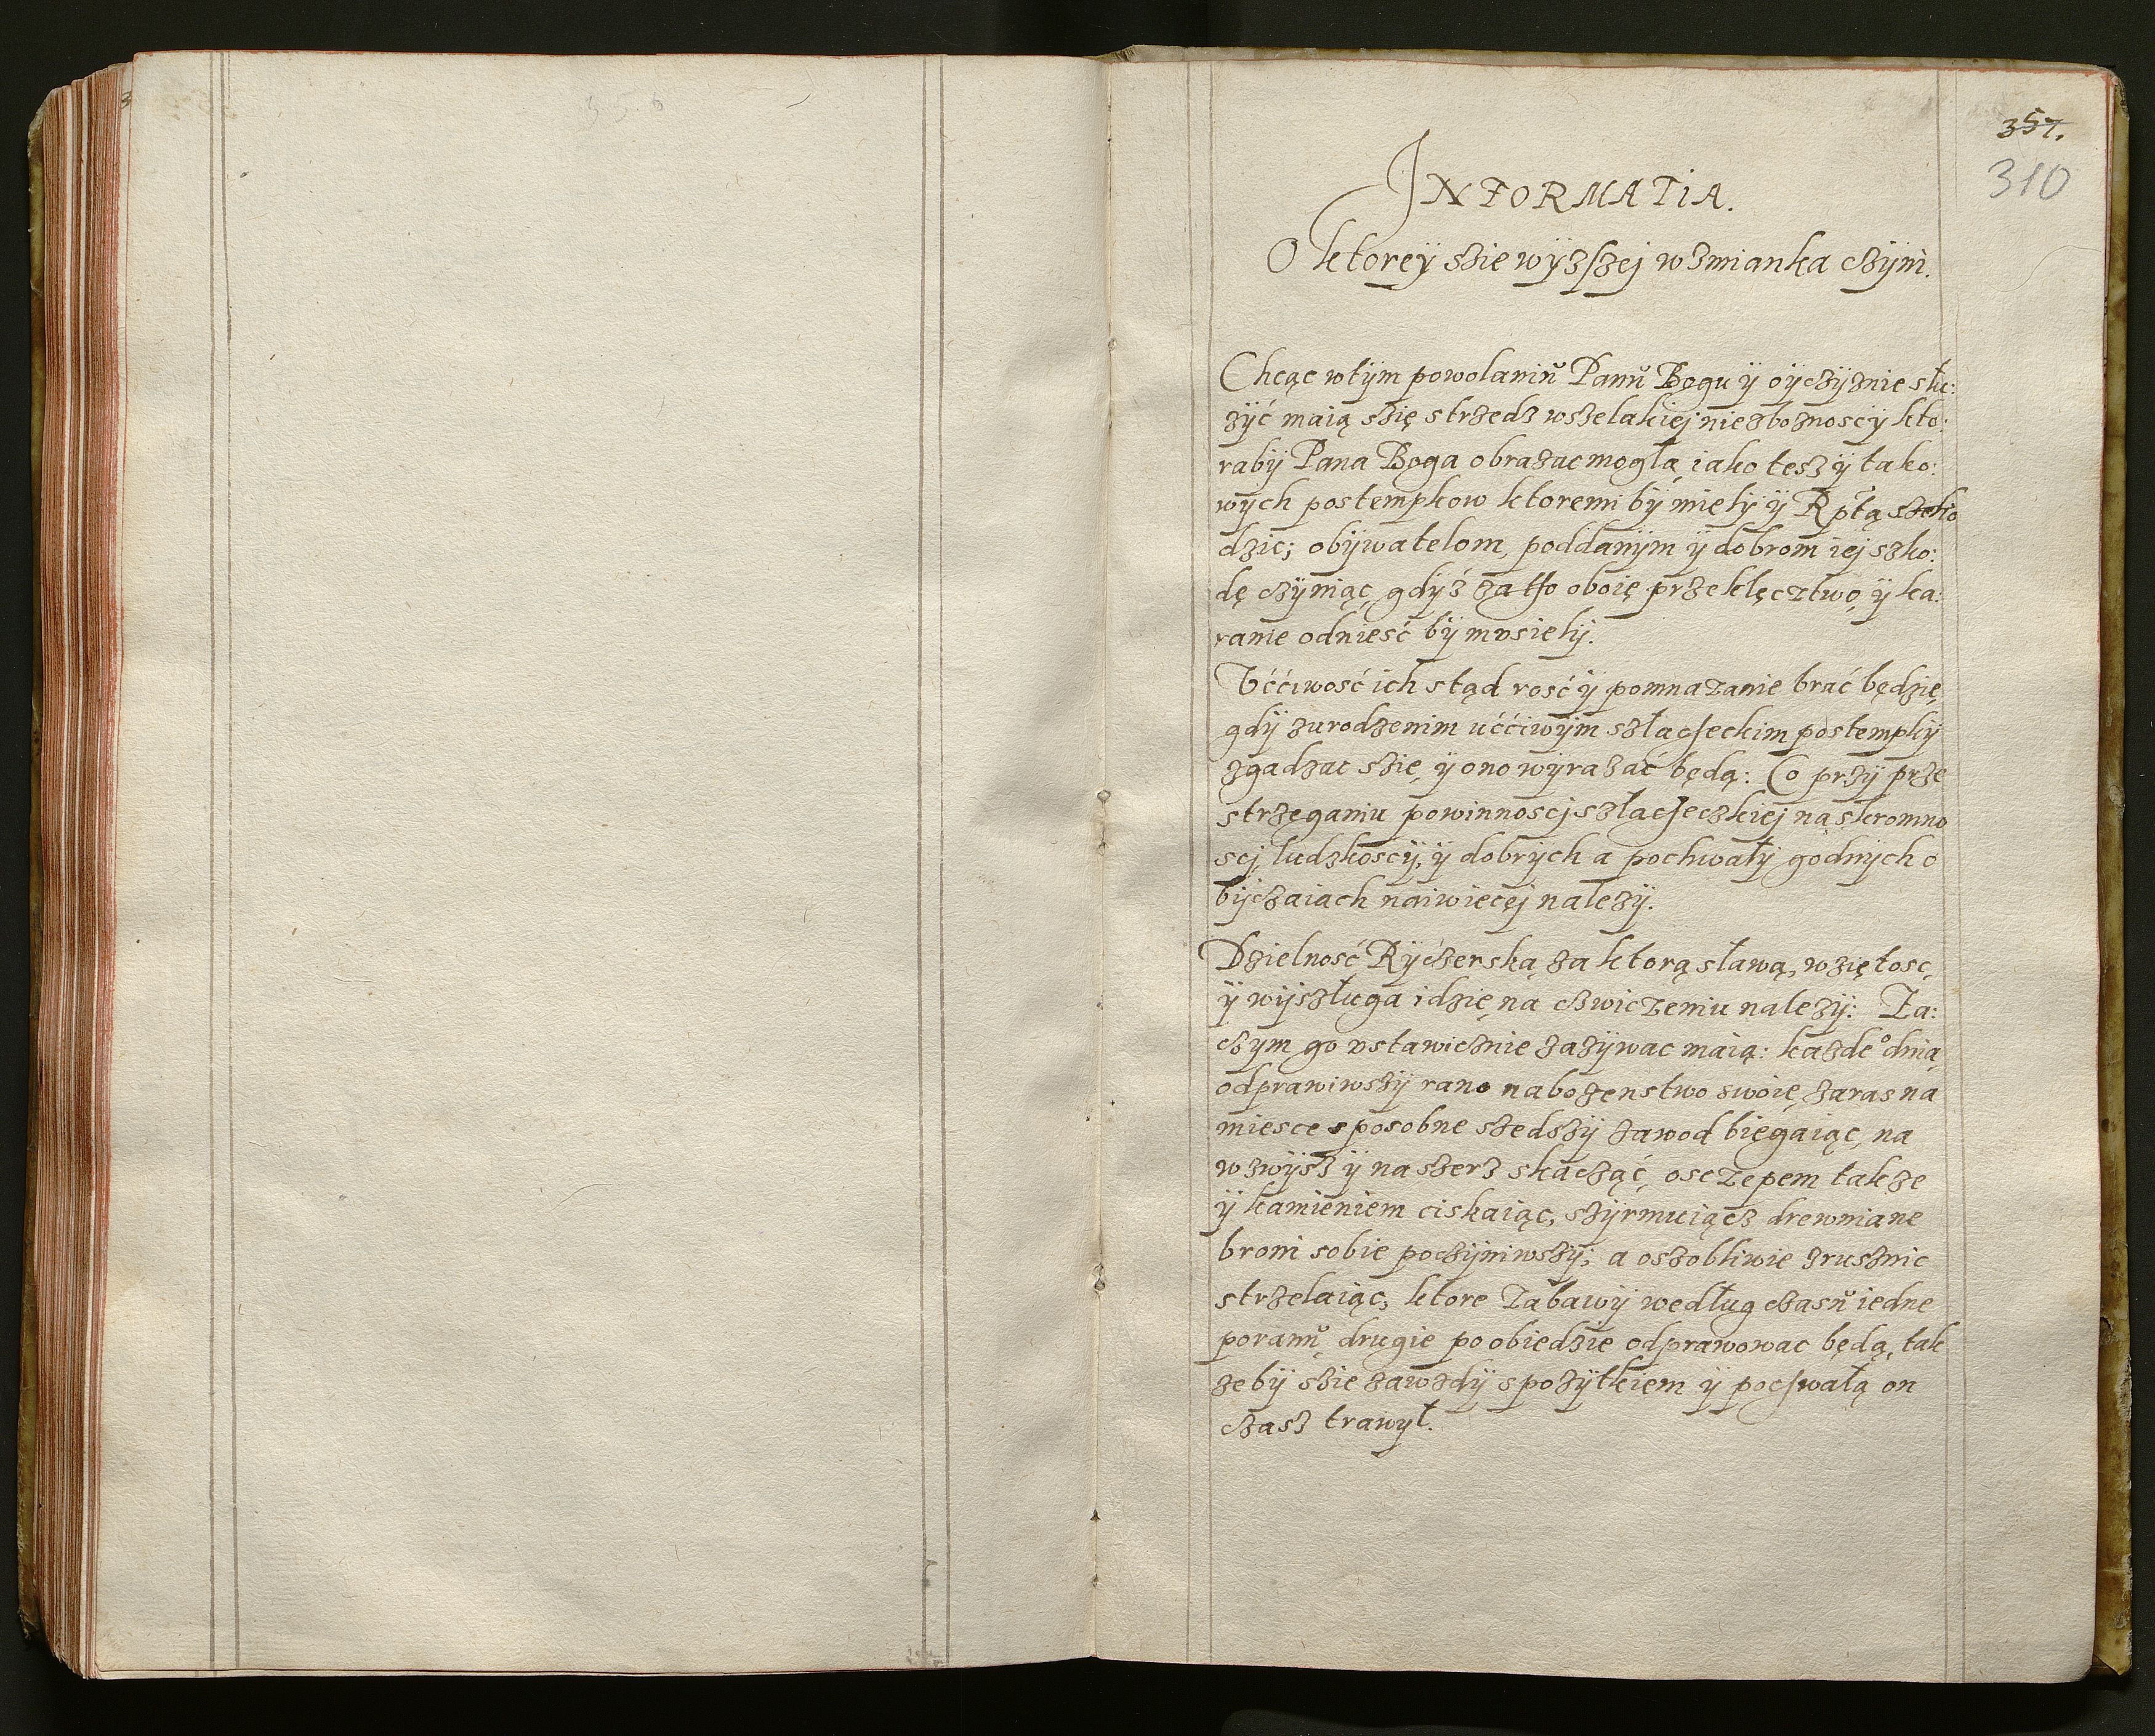 356
357.
310
INFORMATIA.
O ktoreÿ szie wÿzszej wzmianka czÿni.
Chcąc wtÿm powolaniŭ Panŭ Bogu ÿ oÿczÿznie słu:
zÿć maią szię strzedz wszelakiej niezboznoscÿ kto:
rabÿ Pana Boga obrazac mogła, iako tesz ÿ tako:
wÿch postempkow ktoremi bÿ mielÿ ÿ Rptą szko
dzic; obÿwatelom, poddanÿm ÿ dobrom iej szko:
dę czÿniąc, gdÿż za tto oboię przeklęcztwo, ÿ ka:
ranie odniesć bÿ mvsielÿ.
Vććiwosć ich stąd rosć ÿ pomnazanie brać będzie,
gdÿ zurodzenim uććiwÿm szłacheckim postempkÿ
zgadzac szie, ÿ ono wÿrazać będą: Co przÿ prze
strzeganiu powinnoscj szłacheczkiej na skromno
scj, ludzkoscÿ, ÿ dobrÿch a pochwałÿ godnÿch o
bÿczaiach naiwiecej nalezÿ.
Dzielnosć Rÿczerska, za ktorą sława, wziętosc,
ÿ wÿszługa idzie, na czwiczeniu nalezÿ: Za:
czym go vstawicznie zazÿwac maią: kazde° dnia
odprawiwszÿ rano nabozenstwo swoie, zaras na
miesce sposobne szedszÿ zawod biegaiąc, na
wzwÿsz ÿ na szerz skacząć, osczepem takze
ÿ kamieniem ciskaiąc, szÿrmuiącz drewniane
broni sobie poczÿniwszÿ; a oszobliwie zrusznic
strzelaiąc, ktore zabawÿ według czasŭ iedne
poranŭ, drugie po obiedzie odprawowac będą, tak
zebÿ szie zawzdÿ spozÿtkiem ÿ pochwałą on
czasz trawył.